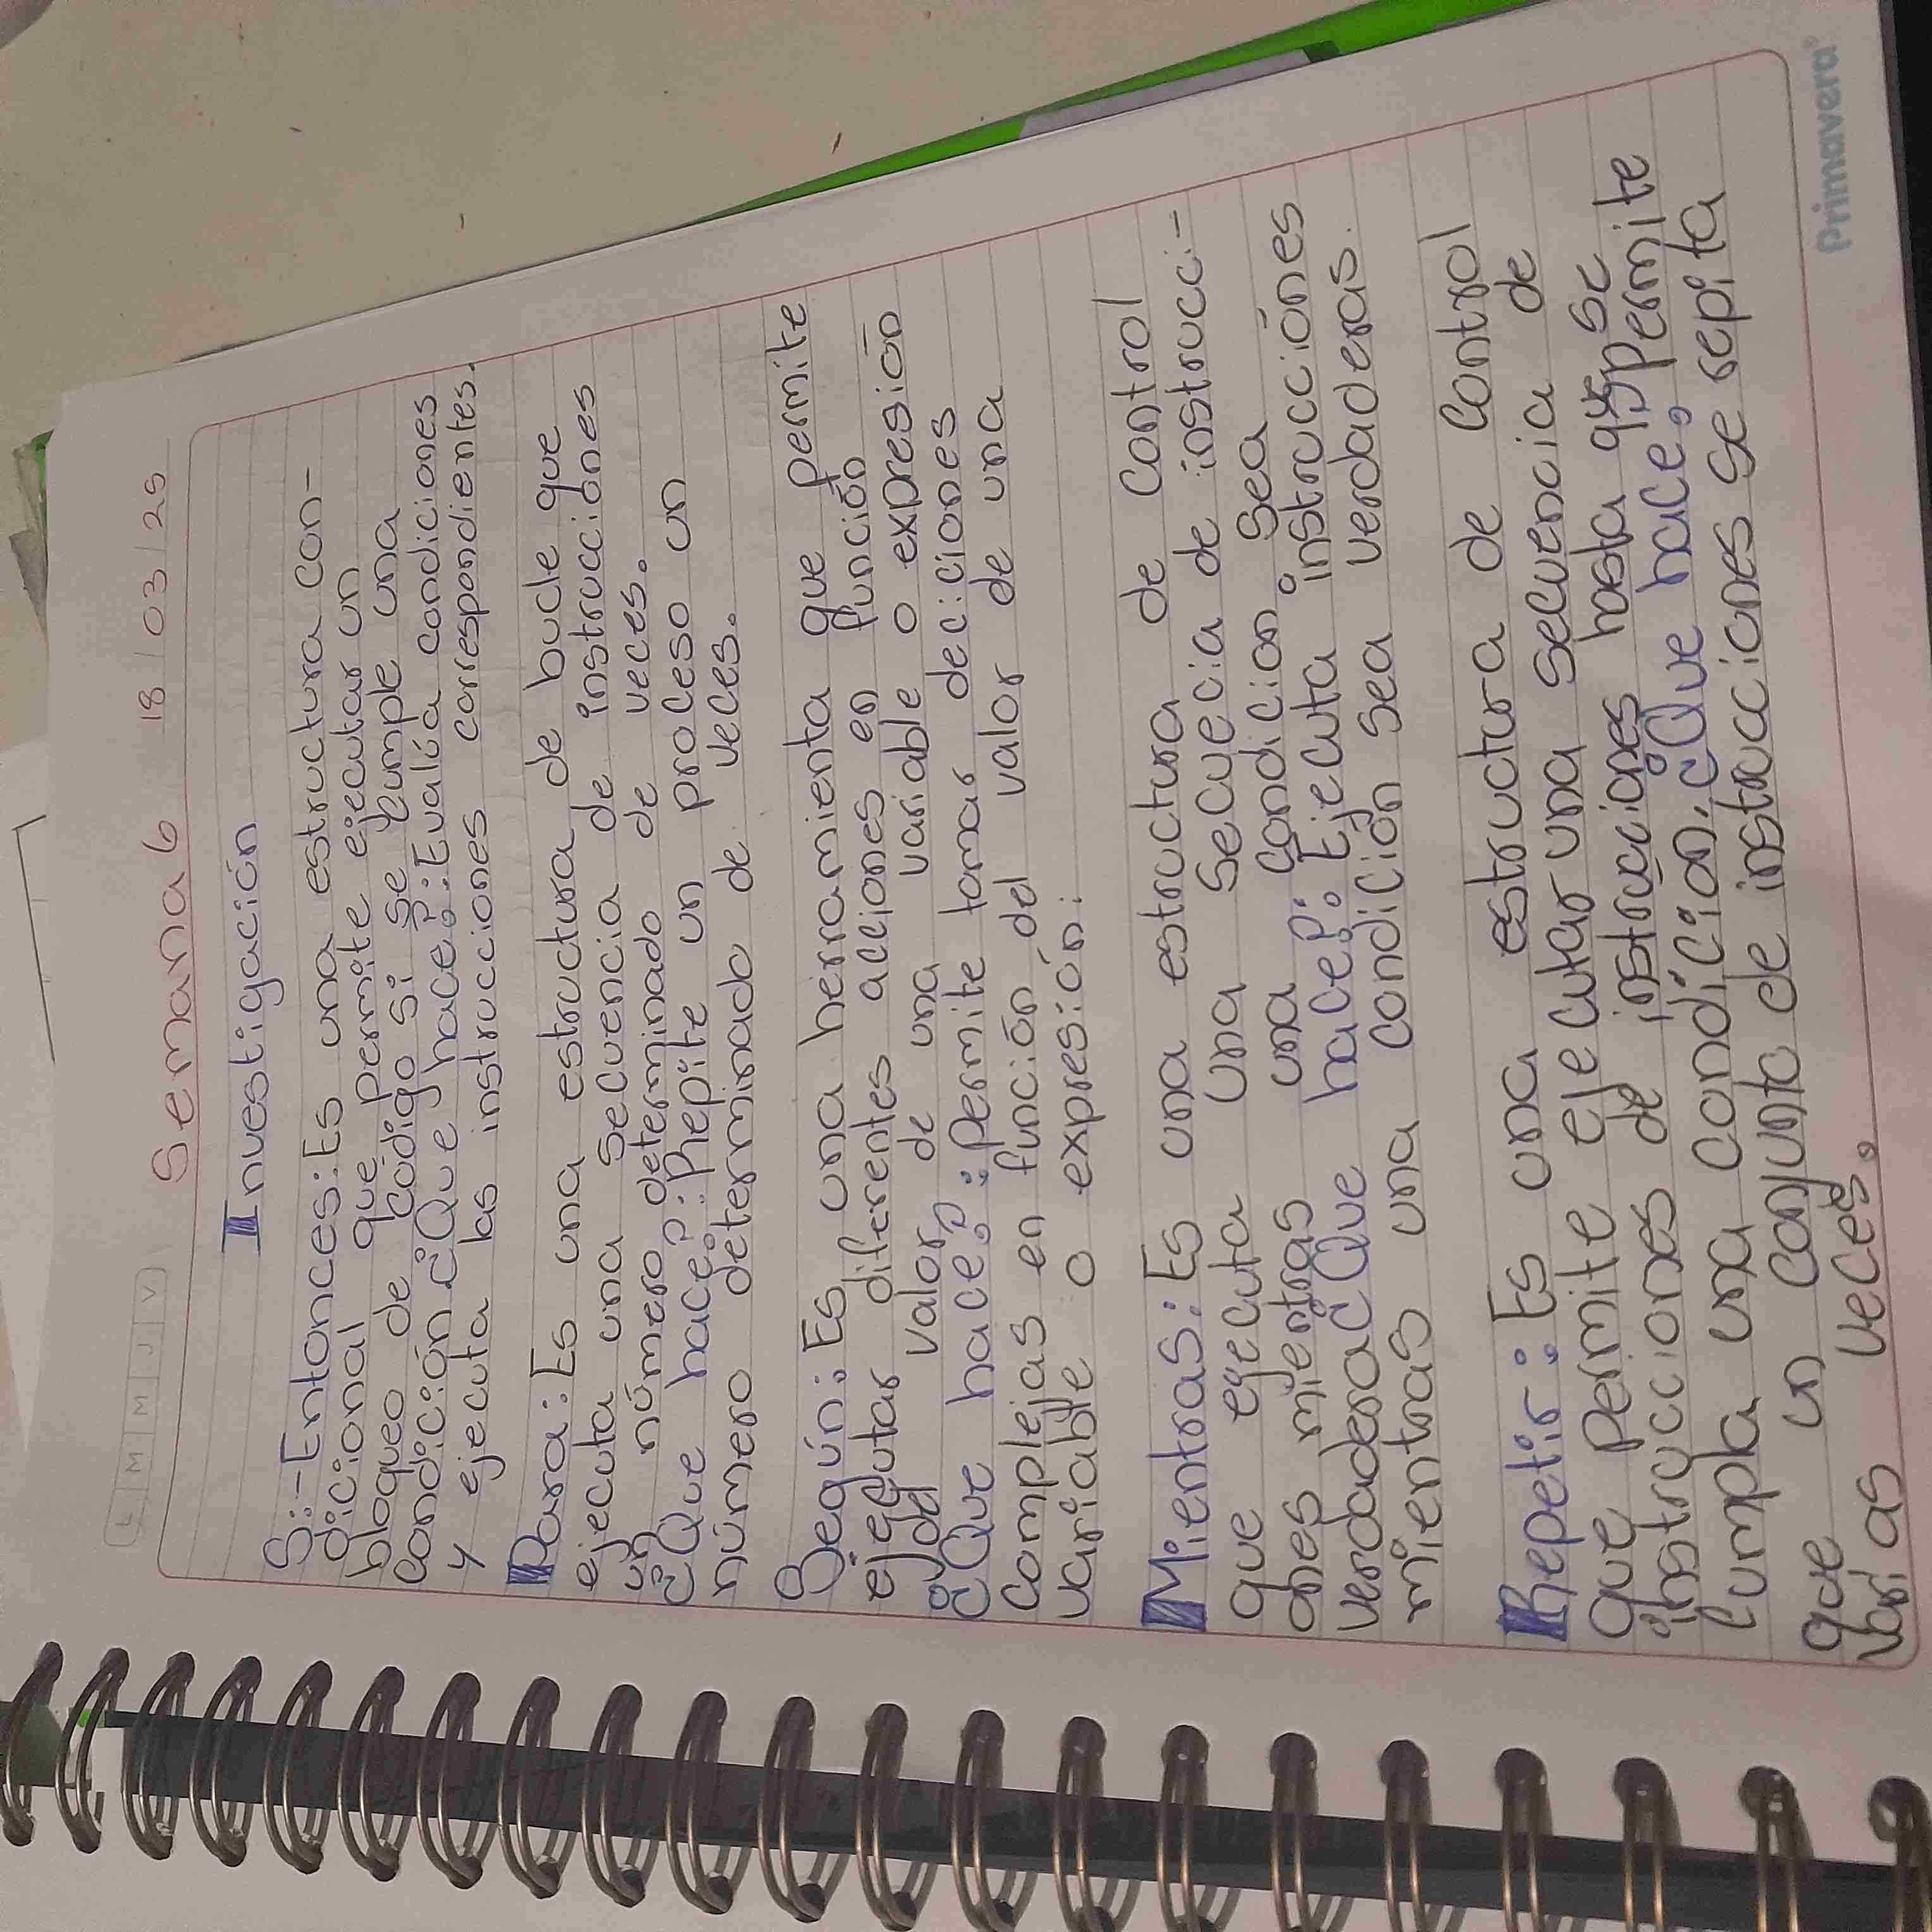 L M M J V
Semana 6 18/03/25
Investigación
Si-Entonces: Es una estructura con-
dicional que permite ejecutar un
bloqueo de código si se cumple una
condición ¿Que hace?: Evalúa condiciones
y ejecuta las instrucciones correspondientes.
Para: Es una estructura de bucle que
ejecuta una secuencia de instrucciones
un número determinado de veces.
¿Que hace?: Repite un proceso un
número determinado de veces.
Según: Es una herramienta que permite
ejecutar diferentes acciones en función
del valor de una variable o expresión
¿Que hace?: Permite tomar deciciones
complejas en función del valor de una
variable o expresión.
Mientras: Es una estructura de control
que ejecuta una secuecia de instrucci-
ones mientras una condicion sea
verdadera ¿Que hace?: Ejecuta instrucciónes
mientras una condición sea verdaderas.
Repetir: Es una estructura de control
que permite ejecutar una secuencia de
instrucciones de instrucciones hasta que se
cumpla una condición. ¿Que hace? Permite
que un conjunto de instrucciones se repita
varias veces.
Primavera